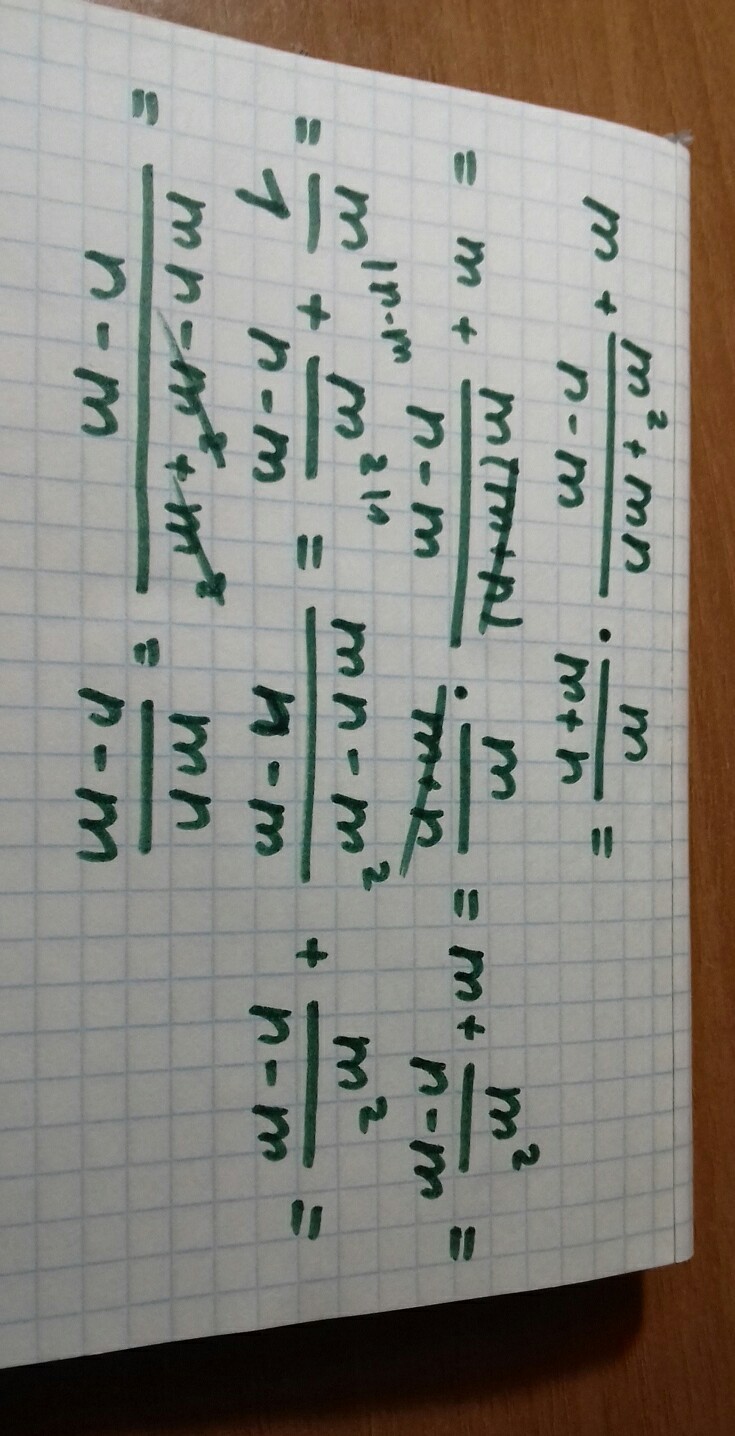 m + \frac{m^2+mn}{n-m} · \frac{m}{m+n} =
= m + \frac{m(m+n)}{n-m} · \frac{m}{m+n} = m + \frac{m^2}{n-m} =
= \frac{m}{1}^{|n-m} + \frac{m^2}{n-m}^{|1} = \frac{mn-m^2}{n-m} + \frac{m^2}{n-m} =
= \frac{mn-m^2+m^2}{n-m} = \frac{mn}{n-m}